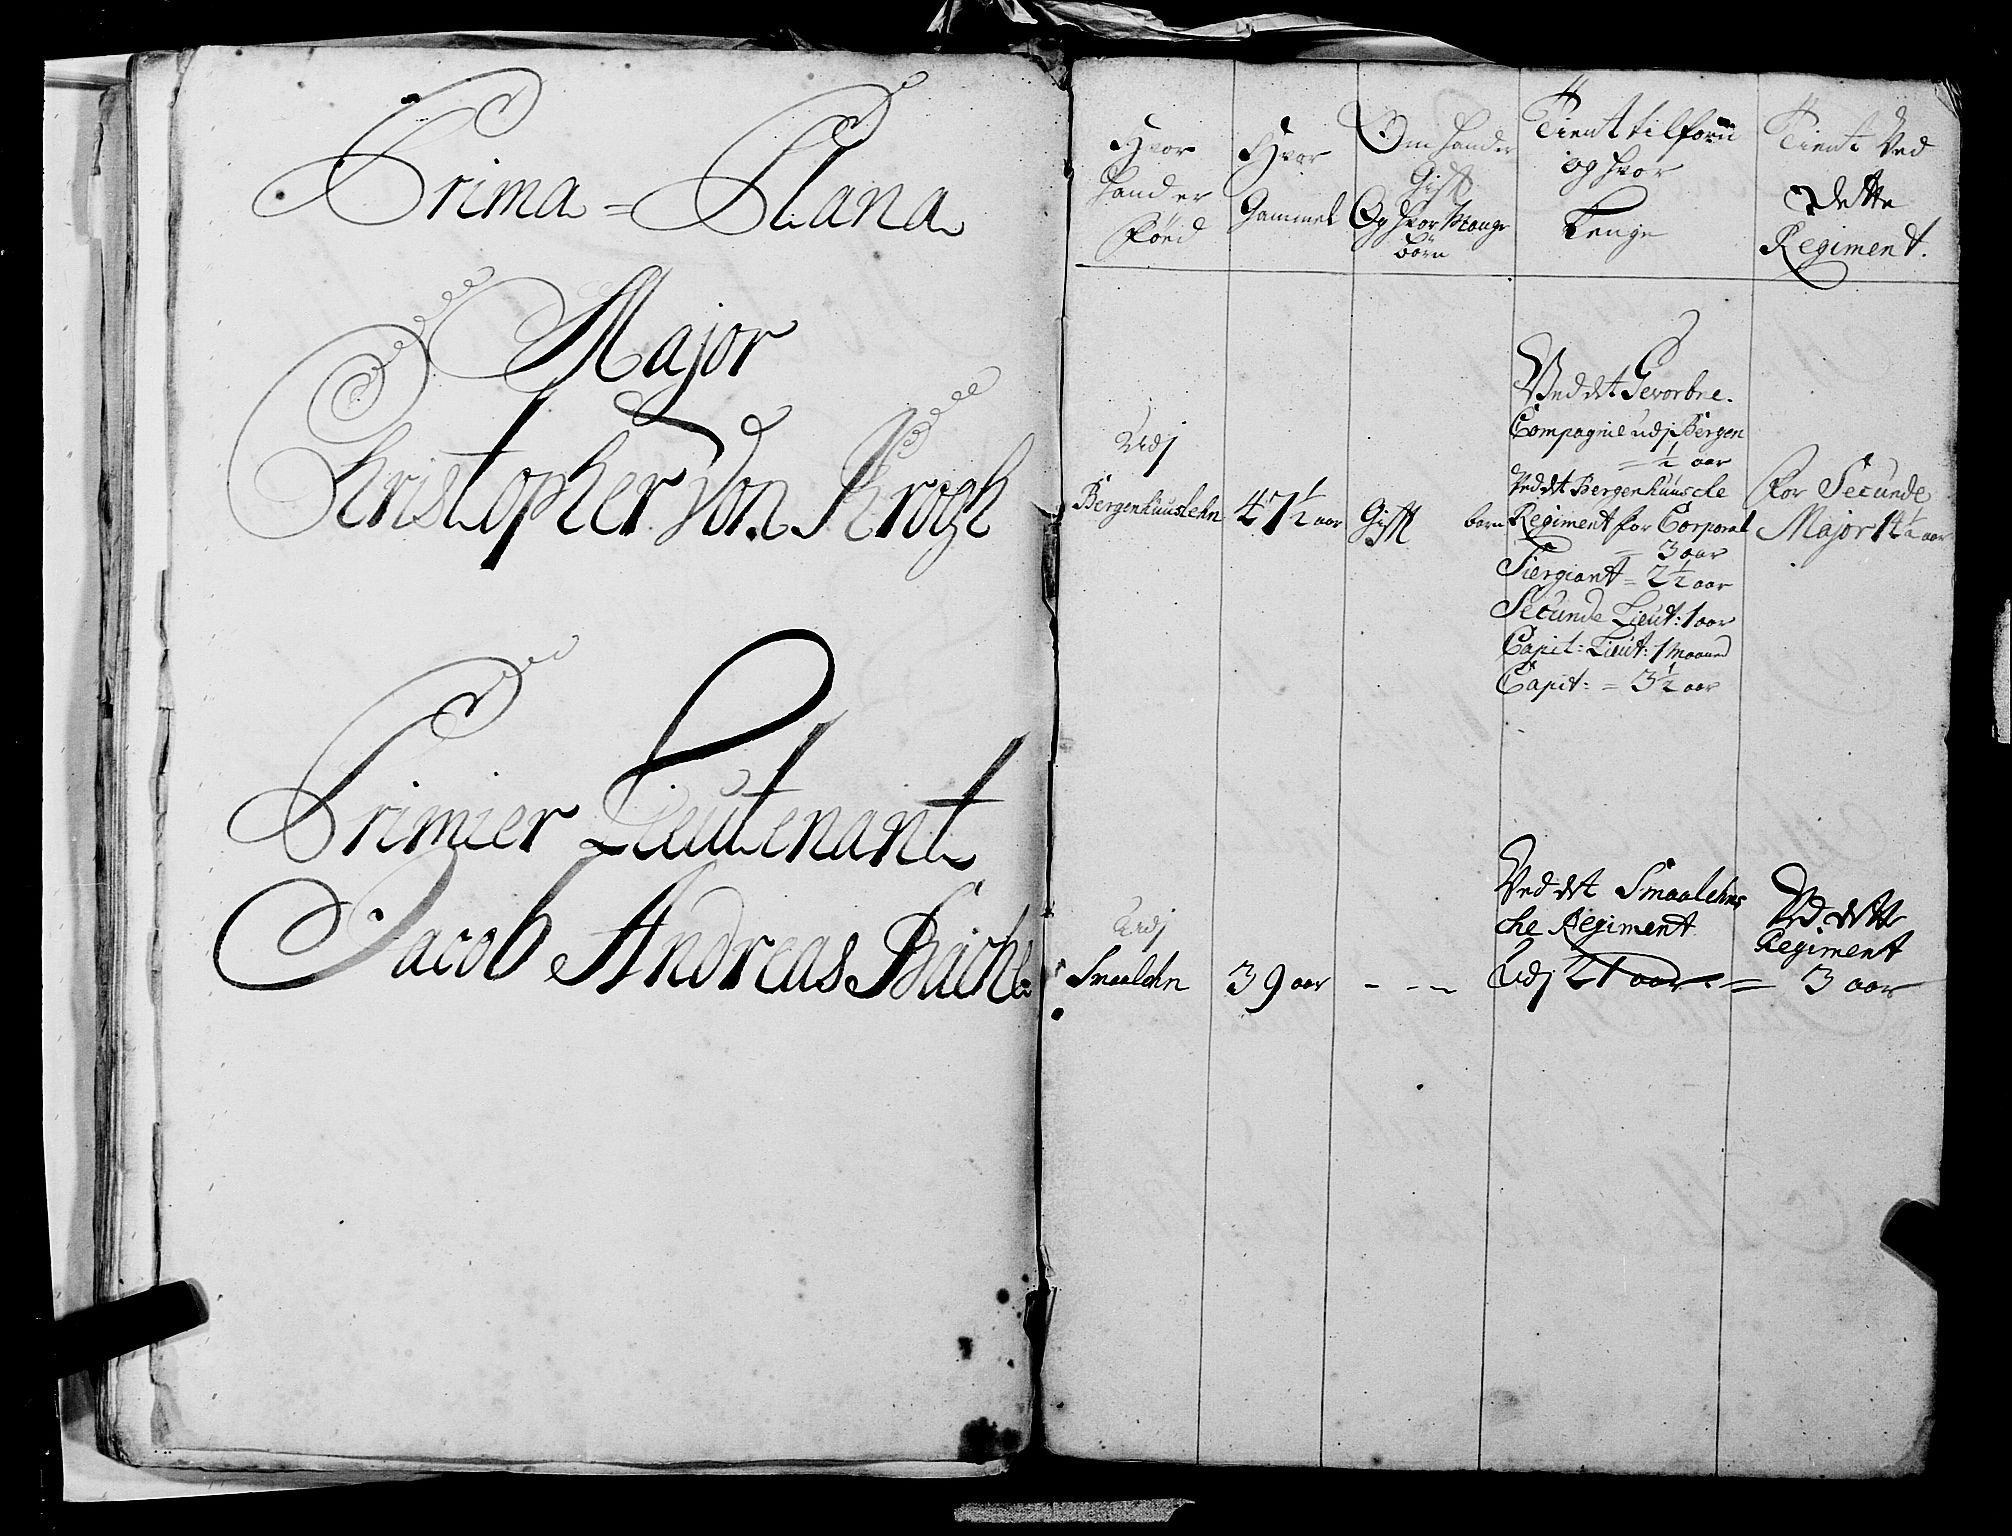 Prima = Plana
Major
Christopher Von Krogh
Primier Lieutenant
Jacob Andreas Bache
Hvor
hand er
Föed
Hvor
Gammel
Om hand er
Gifft
Og hvor Mange
börn
Tient tilforn
og hvor
Lenge
Tient Ved
Dette
Regiment.
Udj
Bergenhuuslehn
47½ aar
Gifft
barn
Ved det Gevorbne
Compagnie udj Bergen
= ½ aar
Ved det Bergenhuusche
Regiment for Corporal
= 3 aar
Siergiant = 2½ aar
Secunde Lieut: 1 aar
Capit: Lieut: 1 Maaned
Capit: = 3½ aar
For Secunde
Major 14½ aar
Udj
Smaalehn
39 aar
- - -
Ved det Smaalehns
che Regiment
Udj 21 aar =
Ved dette
Regiment
3 aar